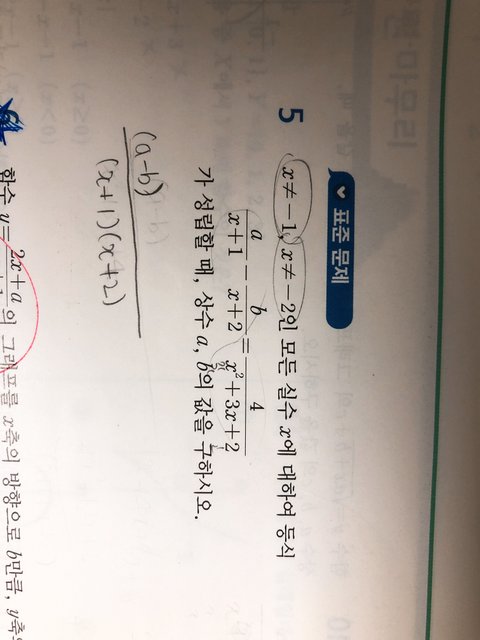 표준 문제
5 x≠-1, x≠-2인 모든 실수 x에 대하여 등식
a/(x+1) - b/(x+2) = 4/(x²+3x+2)
가 성립할 때, 상수 a, b의 값을 구하시오.
(a-b)/((x+1)(x+2))
함수 y= 2x+a 의 그래프를 x축의 방향으로 b만큼, y축